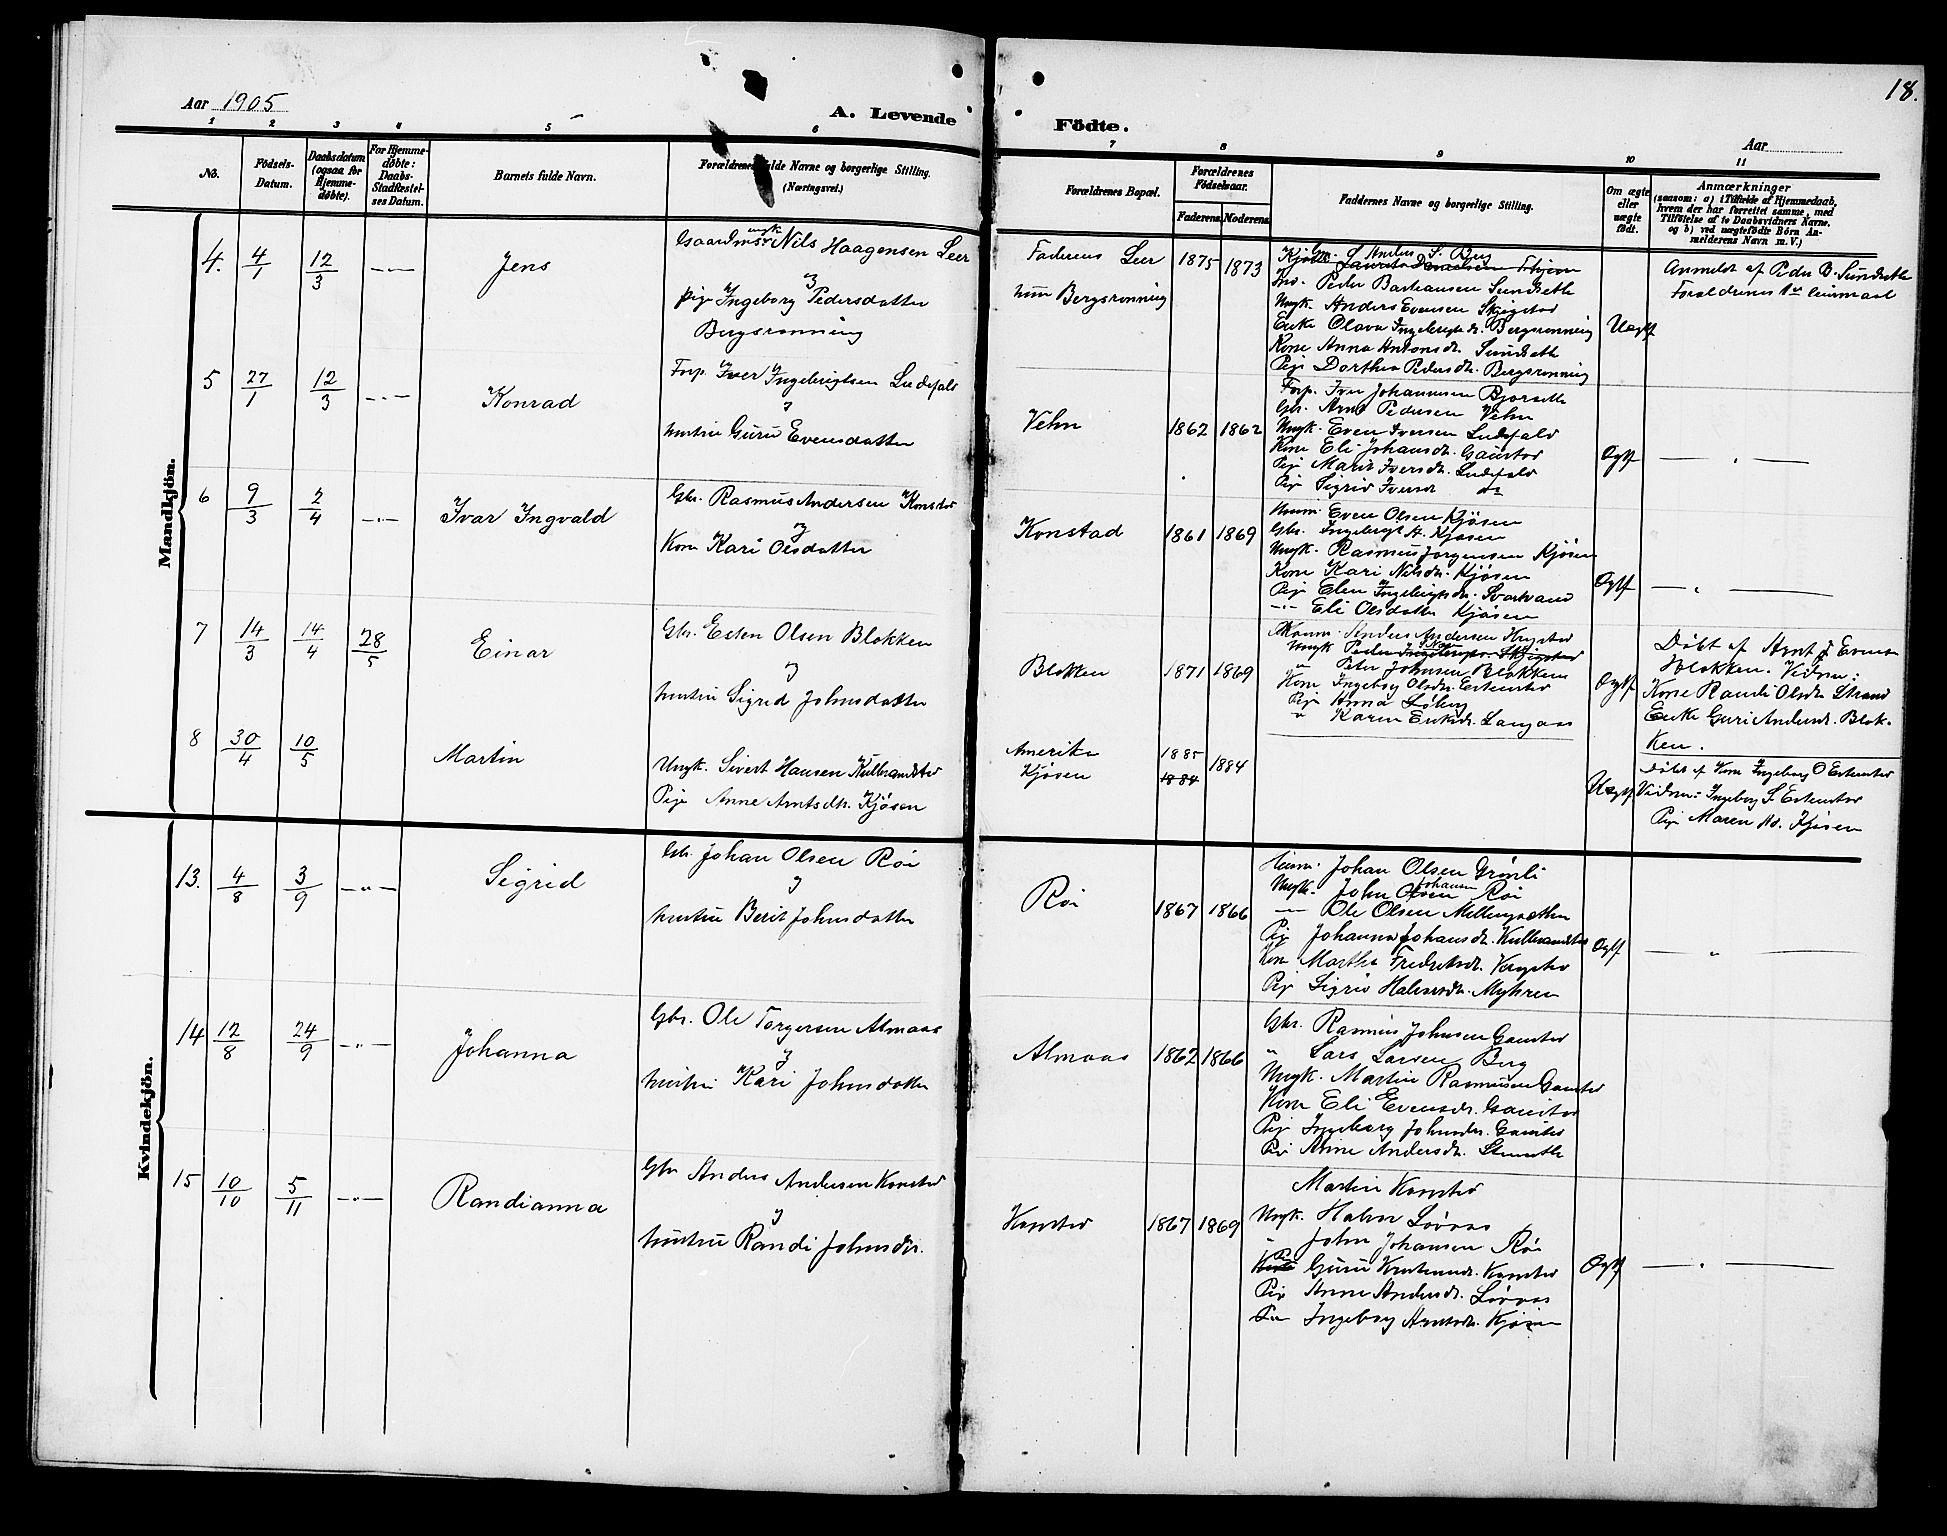 18.
Aar 1905
A. Levende Födte.
Aar
1 2 3 4 5 6 7 8 9 10 11
No.
Födsels-Datum.
Daabsdatum (ogsaa for Hjemme-døbte).
For Hjemme-døbte: Daabs-Stadfæstel-ses Datum.
Barnets fulde Navn.
Forældrenes fulde Navne og borgerlige Stilling. (Næringsvei.)
Forældrenes Bopæl.
Forældrenes Födselsaar.
Faderens. Moderens.
Faddernes Navne og borgerlige Stilling.
Om ægte eller uægte födt.
Anmærkninger
(saasom: a) i Tilfælde af Hjemmedaab,
hvem der har forrettet samme, med
Tilföielse af to Daabsvidners Navne,
og b) ved uægtefödte Börn An-
melderens Navn m. V.)
Mandkjön.
4. 4/1 12/3 -"- Jens
Gaardmsr ungk Nils Haagensen Leer
&
pige Ingeborg Pedersdatter
Bergsrønning
Faderens Leer
Bergsrønning
1875 1873
Anders S. Berg
Peder Bardausen Sundseth
Ungk. Anders Evensen Skjegstad
Enke Olava Ingebrigtsd. Bergsrønning
Kone Anna Antonsd. Sundseth
Pige Dorthea Pedersd. Bergsrønning
Uægte
Anmeldt af Peder B. Sundseth
Forældrenes 1ste leiermaal
5 27/1 12/3 -"- Konrad
Forp. Iver Ingebrigtsen Ludsfald
&
hustru Guru Evensdatter
Vehn
1862 1862
Forp. Iver Johannesen Bjørseth
Gbr. Arnt Pedersen Vehn
Ungk. Even Iversen Ludsfald
Kone Eli Johansd. Gaustad
Pige Marit Iversd. Ludsfald
Pige Sigrid Iversd do
Ægte
6 9/3 2/4 -"- Ivar Ingvald
Gbr. Rasmus Andersen Konstad
&
Kone Kari Olsdatter
Konstad
1861 1869
Even Olsen Kjøsen
Gbr. Ingebrigt A. Kjøsen
Ungk. Rasmus Jørgensen Kjøsen
Kone Kari Nilsd. Kjøsen
Pige Elen Ingebrigtsd. Svartvand
-"- Eli Olsdatter Kjøsen
Ægte
7 14/3 14/4 28/5 Einar
Gbr. Esten Olsen Blokken
&
hustru Sigrid Johnsdatter
Blokken
1871 1869
Anders Andersen Kregstad
Ungk Peder Ingebrigtsen Skjegstad
" Peter Johnsen Blokken
Kone Ingeborg Olsdr. Estenstad
Pige Anna Løberg
" Karen Eriksd. Langaas
Ægte
Døbt af Arnt J Evensen
Blokken. Vidner:
Kone Randi Olsdr Strand
Enke Guri Andersd. Blok-
ken.
8 30/4 10/5 Martin
Ungk. Sivert Hansen Kulbrandstad
Pige Anne Arntsdr. Kjøsen
Amerika
Kjøsen
1885 1884
1884
Uægte
Døbt af Kone Ingeborg O Estenstad
Vidner: Ingeborg S. Estenstad
Pige Maren Ad. Kjøsen
Kvindekjön.
13. 4/8 3/9 -"- Sigrid
Gbr. Johan Olsen Røe
&
hustru Berit Johnsdatter
Røe
1867 1866
Johan Olsen Grønli
Ungk. John Olsen Johansen Røe
-"- Ole Olsen Mellingsæther
Pige Johanna Johansd. Kulbrandstad
Kone Martha Fredriksd. Kregstad
Pige Sigrid Halvorsd. Myhren
Ægte
14 12/8 24/9 -"- Johanna
Gbr. Ole Torgersen Almaas
&
hustru Kari Johnsdatter
Almaas
1862 1866
Gbr. Rasmus Johnsen Gaustad
" Lars Larsen Berg
Ungk. Martin Rasmussen Gaustad
Kone Eli Evensd. Gaustad
Pige Ingeborg Johnsdr. Gaustad
Pige Anne Andersdr.
15 10/10 5/11 -"- Randianna
Gbr Anders Andersen Konstad
&
hustru Randi Johnsdr.
Konstad
1867 1869
Martin Konstad
Ungk. Halvor Løvaas
" John Johansen Røe
Pige Guru Konstad
Pige Anne Andersd. Løvaas
Pige Ingeborg Arntsd. Kjøsen
Ægte